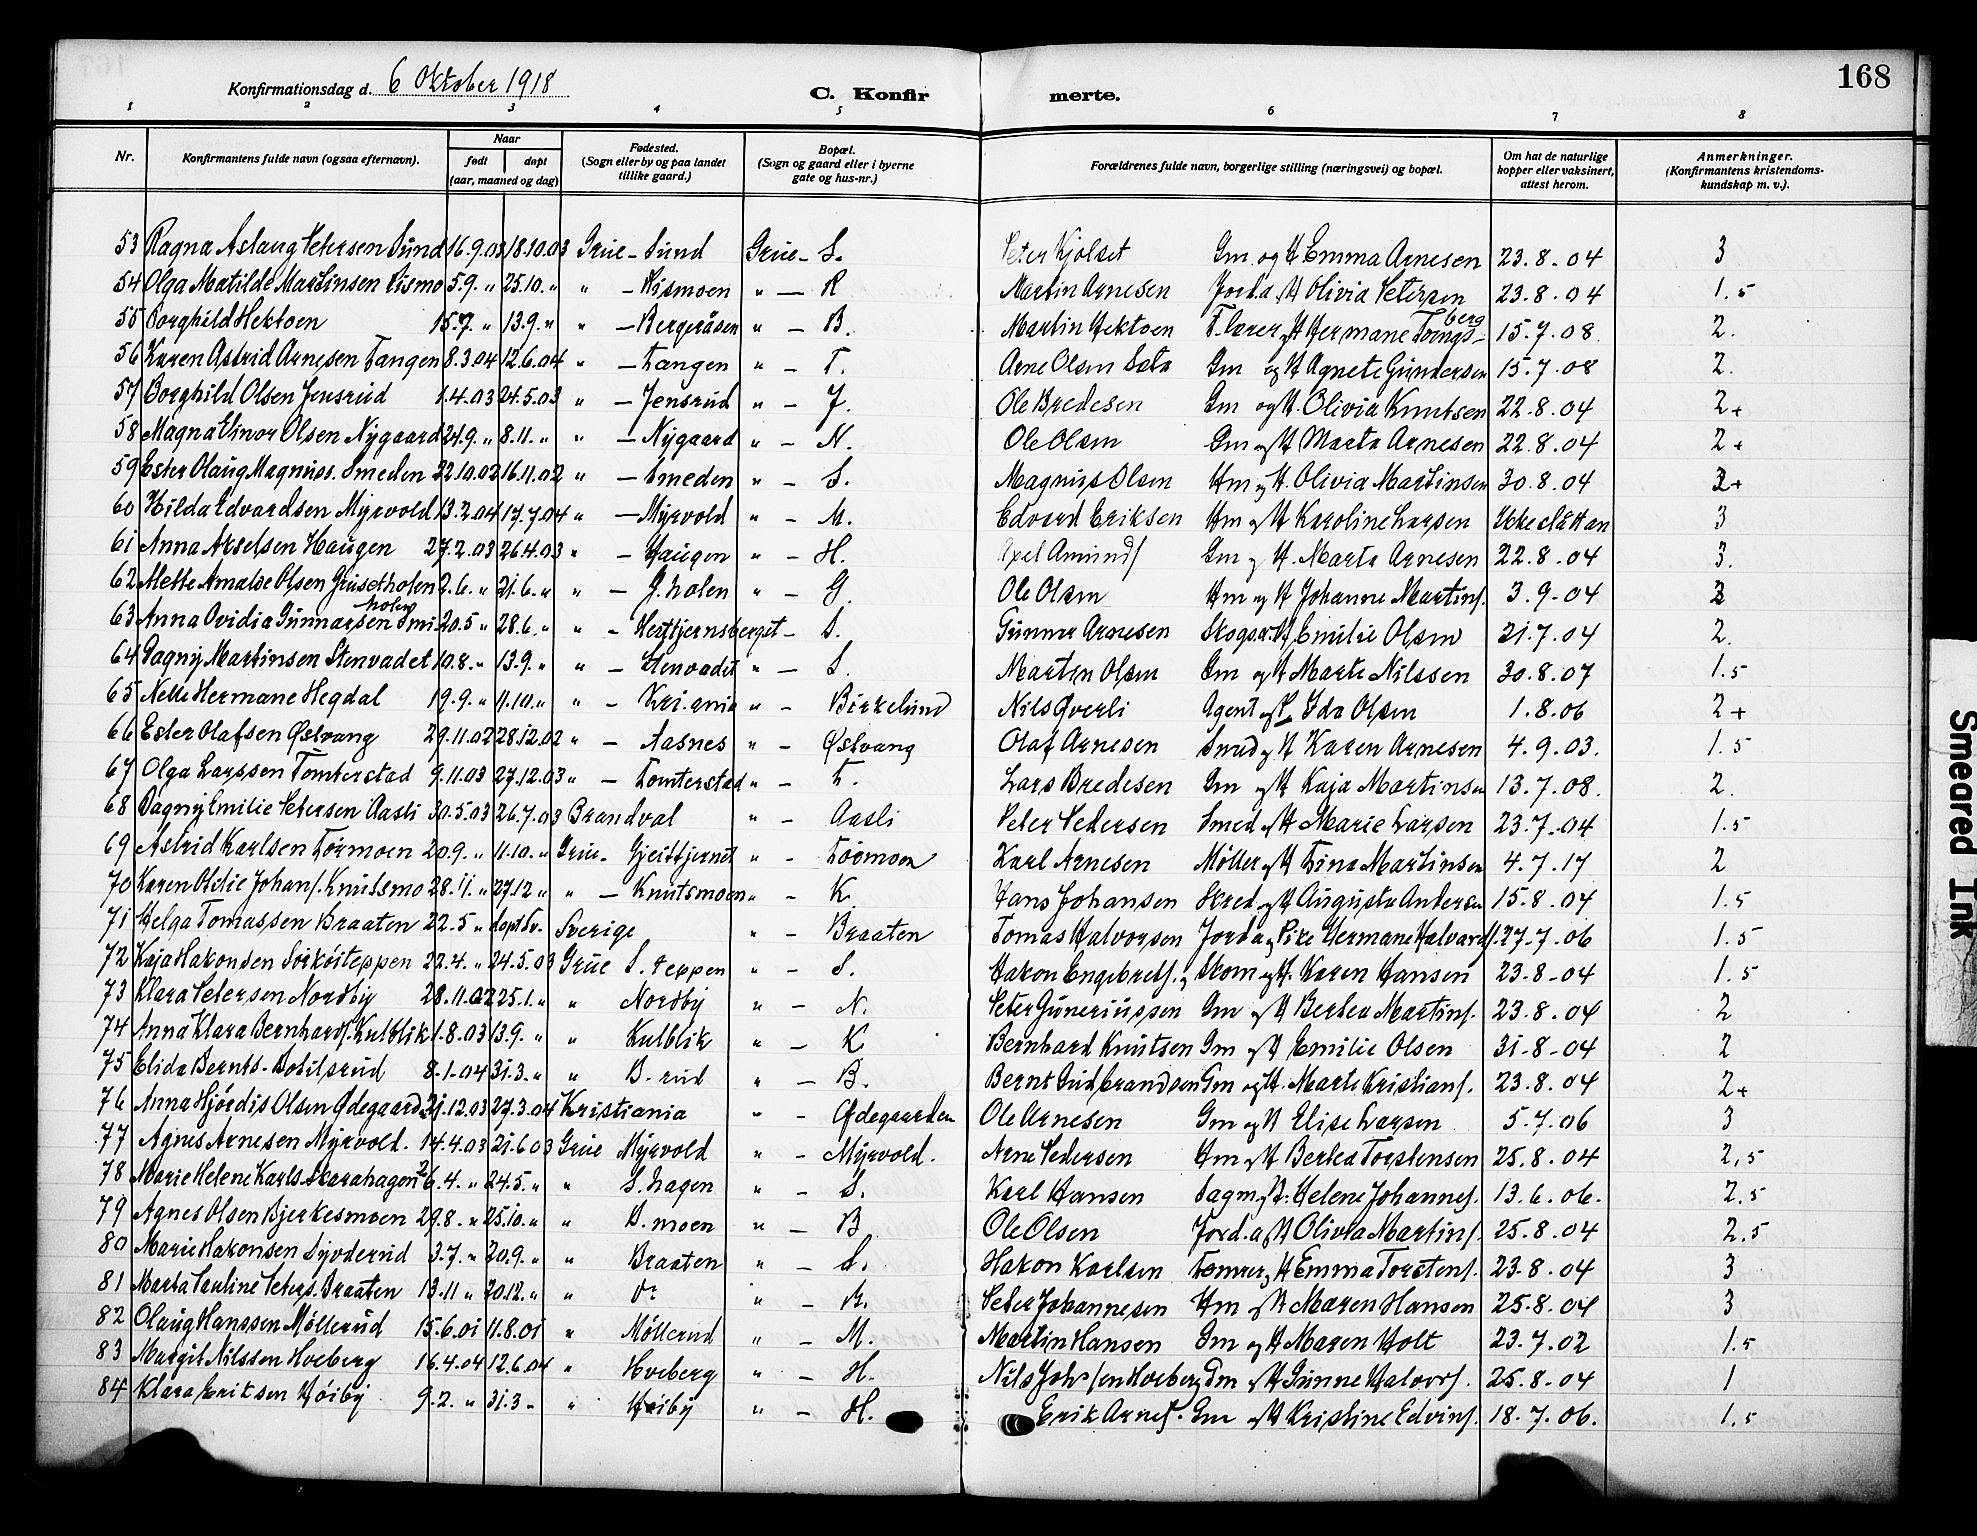 168
Konfirmationsdag d. 6 Oktober 1918 C. Konfir merte.
1 2 3 4 5 6 7 8
Nr. Konfirmantens fulde navn (ogsaa efternavn). Naar født døpt (aar, maaned og dag) Fødested. (Sogn eller by og paa landet tillike gaard.) Bopæl. (Sogn og gaard eller i byerne gate og hus-nr.) Forældrenes fulde navn, borgerlige stilling (næringsvei) og bopæl. Om hat de naturlige kopper eller vaksinert, attest herom. Anmerkninger. (Konfirmantens kristendoms- kundskap m. v.).
53 Ragna Aslaug Petersen Sund 16.9.03 18.10.03 Grue - Sund Grue - S. Peter Kjølset Gm. og H Emma Arnesen 23.8-04 3
54 Olga Matilde Martinsen Rismo 5.9. " 25.10. " " - Rismoen " - R Martin Arnesen Jorda. H Olivia Petersen 23.8.04 1.5
55 Borghild Hektoen 15.7. " 13.9. " " - Bergeråsen " - B. Martin Hektoen F. lærer og H Hermane Tvengs-berg 15.7.08 2.
56 Karen Astrid Arnesen Tangen 8.3.04 12.6.04 " - Tangen " - T. Arne Olsen Gm og H Agnete Gundersen 15.7.08 2.
57 Borghild Olsen Jensrud 1.4.03 24.5.03 " - Jensrud " - J. Ole Bredesen Gm og H. Olivia Knutsen 22.8.04 2+
58 Magna Elinor Olsen Nygaard 24.9. " 8.11. " " - Nygaard " - N. Ole Olsen Gm og H Marta Arnesen 22.8.04 2+
59 Ester Olaug Magnuss. Smeden 22.10.02 16.11.02 " - Smeden " - S. Magnus Olsen Hm og H. Olivia Martinsen 30.8.04 2+
60 Hilda Edvardsen Myrvold 13.2.04 17.7.04 " - Myrvold " - M. Edvard Eriksen Hm og H Karoline Larsen Ikke slåt an 3
61 Anna Akselsen Haugen 27.2.03 26.4.03 " - Haugen " - H. Axel Amunds Gm og H. Marta Arnesen 22.8.04 3.
62 Mette Amalie Olsen Griseholen 2.6. " 21.6. " " - G. holen " - G. Ole Olsen Hm og H Johanne Martins. 3.9-04 2
63 Anna Ovidia Gunnarsen Smiholen 20.5 " 28.6. " " - Hestkjernsberget - S. Gunnar Arnesen Skogsar. H Emilie Olsen 21.7.04 2.
64 Dagny Martinsen Stenvadet 10.8. " 13.9. " " - Stenvadet " - S. Martin Olsen Gm og H Marte Nilssen 30.8.07 1.5
65 Nelli Hermane Hegdal 19.9. " 11.10. " " - Kri.ania " - Birkelund Nils Qverli Agent og P Ida Olsen 1.8.06 2+
66 Ester Olafsen Østvang 29.11.02 28.12.02 " - Aasnes " - Østvang Olaf Arnesen Smed og H Karen Arnesen 4.9.03. 1.5
67 Olga Larssen Tomterstad 9.11.03 27.12.03 " - Tomterstad " - T. Lars Bredesen Gm og H Kaja Martinsen 13.7.08. 2.
68 Dagny Emilie Petersen Aasli 30.5.03 26.7.03 Brandval " - Aasli Peter Pedersen Smed og H Marie Larsen 23.7-04 1.5
69 Astrid Karlsen Tørmoen 20.9. " 11.10. " Grue - Gjeittjernet " - Tørmoen Karl Arnesen Møller og H Tina Martinsen 4.7.17 2
70 Karen Otilie Johans. Knutsmo 28.11. " 27.12 " " - Knutsmoen " - K. Hans Johansen Skred. og H Augusta Andersen 15.8.04 1.5
71 Helga Tomassen Braaten 22.5 " døpt Sv. Sverige " - Braaten Tomas Halvorsen Jorda og Pike Hermane Halvards. 27.7.06 1.5
72 Kaja Hakonsen Sørkosteppen 22.4. " 24.5.03 Grue S. teppen " - S. Hakon Engebrets. Skom og H. Karen Hansen 23.8-04 1.5
73 Klara Petersen Nordby 28.11.02 25.1. " " Nordby " - N. Peter Guneriussen Gm og H Bertea Martins. 23.8.04 2
74 Anna Klara Bernhards. Kulblik 1.8.03 13.9. " " Kulblik " - K Bernhard Knutsen Gm og H Emilie Olsen 31.8-04 2
75 Elida Bernts. Botilsrud 8-1-04 31.3. " " B. rud " - B. Bernt Gudbrandsen Gm og H. Marte Kristians. 23.8.04 2+
76 Anna Hjørdis Olsen Ødegaarden 21.12.03 27.3.04 Kristiania " - Ødegaarden Ole Arnesen Gm og H Elise Larsen 5.7.06 3
77 Agnes Arnesen Myrvold. 14.4.03 21.6.03 Grue Myrvold " - Myrvold. Arne Pedersen Hm og H Bertea Torstensen 25.8.04 2,5
78 Marie Helene Karls. Skarahagen 26.4. " 24.5. " " S. hagen " - S. Karl Hansen Dagm. og H. Helene Johannes. 13.6.06. 2.5
79 Agnes Olsen Bjerkesmoen 29.8. " 25.10. " " B. moen " - B Ole Olsen Jord.a og H Olivia Martins. 25.8.04 2.5
80 Marie Hakonsen Syvderud 3.7. " 20.9. " " Braaten " - S. Hakon Karlsen Tømrer og H Emma Torstens. 23.8.04 3
81 Marta Pauline Peters. Braaten 13.11 " 20.12. " " Do " - B. Peter Johannesen Hm og H Maren Hansen 25.8.04 3
82 Olaug Hanssen Møllerud 15.6.01 11.8.01 " Møllerud " - M. Martin Hansen Gm og H Maren Holt 23.7.02 1.5
83 Margit Nilssen Hveberg 16.4.04 12.6.04 " Hveberg " - H. Nils Johssen Hveberg Gm og H Gunne Halvors. 25.8-04 1
84 Klara Eriksen Høiby 9.2. " 31.3 " " Høiby " - H. Erik Arnes. Gm og H Kristine Edvins. 18.7.06. 1.5
Smeared Ink